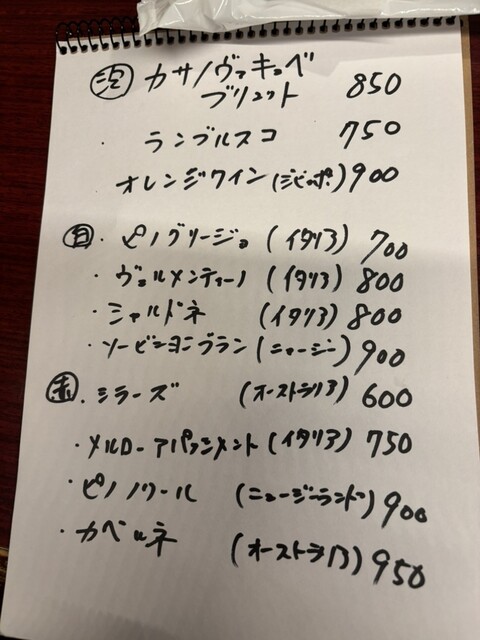 泡 カサノヴァキュベ
ブリュット 850
・ランブルスコ 750
オレンジワイン(ジビッボ) 900
白・ピノグリージョ (イタリア) 700
・ヴェルメンティーノ (イタリア) 800
・シャルドネ (イタリア) 800
・ソービニヨンブラン (ニュージー) 900
赤・シラーズ (オーストラリア) 600
・メルローアパッシメント (イタリア) 750
・ピノノワール (ニュージーランド) 900
・カベルネ (オーストラリア) 950